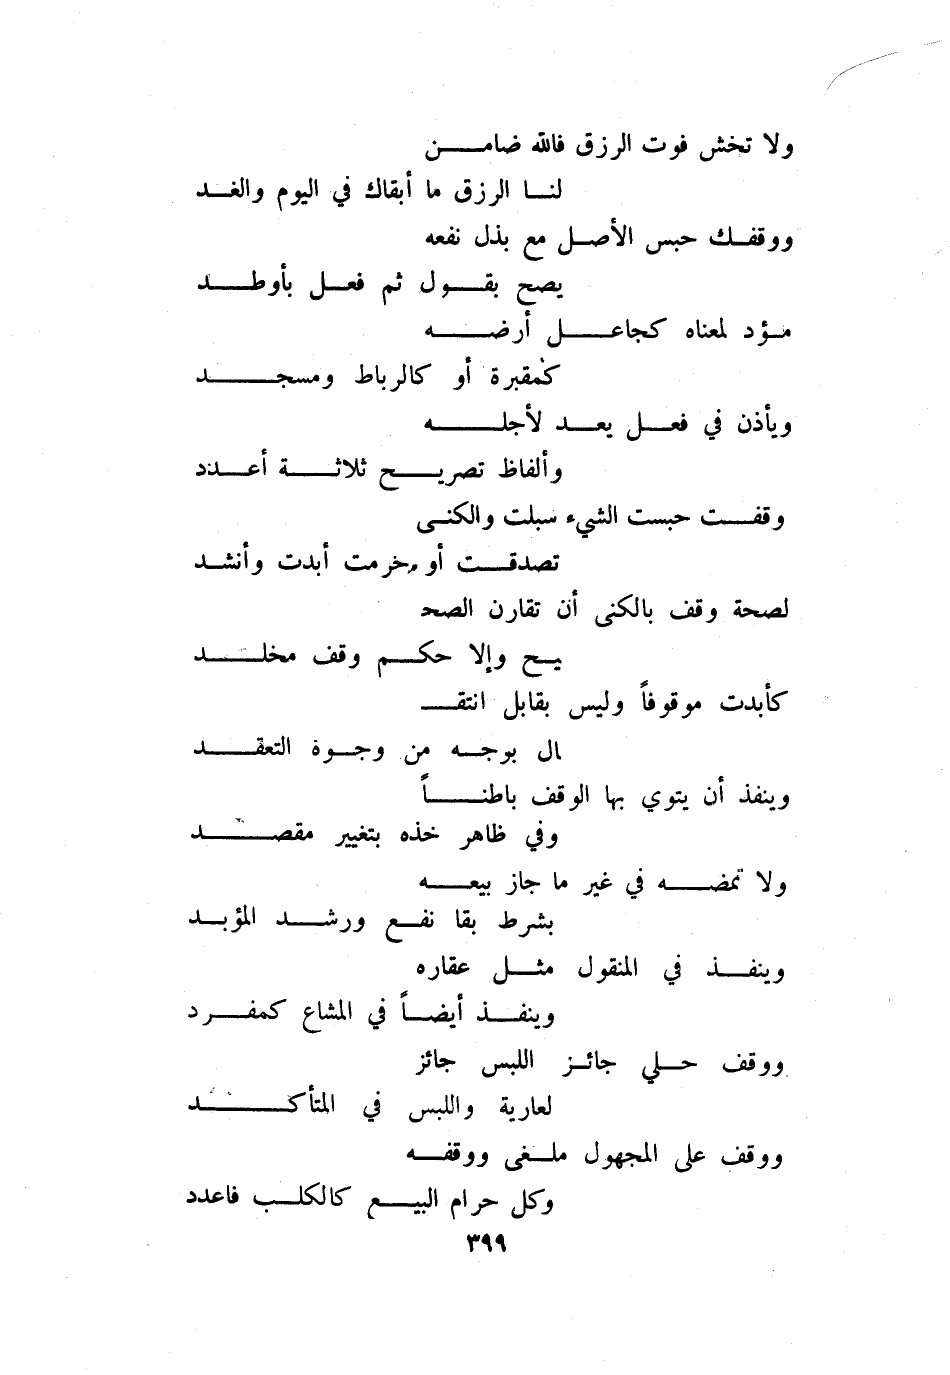 ولا تخش فوت الرزق فالله ضامن
لنا الرزق ما أبقاك في اليوم والغد
ووقفك حبس الأصل مع بذل نفعه
يصح بقول ثم فعل بأوطد
مؤد لمعناه كجاعل أرضه
كمقبرة أو كالرباط ومسجد
ويأذن في فعل يعد لأجله
وألفاظ تصريح ثلاثة أعدد
وقفت حبست الشيء سبلت والكنى
تصدقت أو حرمت أبدت وأنشد
لصحة وقف بالكنى أن تقارن الصحـ
ـيح وإلا حكم وقف مخلد
كأبدت موقوفاً وليس بقابل انتقـ
ال بوجه من وجوة التعقد
وينفذ أن يتوي بها الوقف باطناً
وفي ظاهر خذه بتغيير مقصد
ولا تمضه في غير ما جاز بيعه
بشرط بقا نفع ورشد المؤبد
وينفذ في المنقول مثل عقاره
وينفذ أيضاً في المشاع كمفرد
ووقف حلي جائز اللبس جائز
لعارية واللبس في المتأكد
ووقف على المجهول ملغى ووقفه
وكل حرام البيع كالكلب فاعدد
٣٩٩